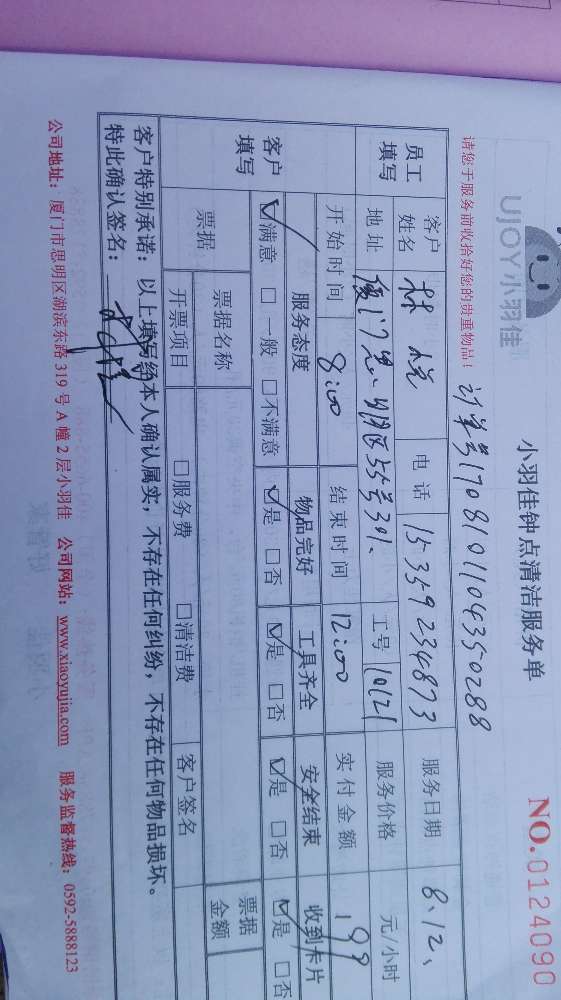 UJOY小羽佳
小羽佳钟点清洁服务单
NO.0124090
请您于服务前收拾好您的贵重物品！
订单号1708101104350288
员工填写
客户姓名 林 电话 15359234873 服务日期 8.12、
地址 厦门思明区55号301、 工号 10121 服务价格 元/小时
开始时间 8:00 结束时间 12:00 实付金额 199
客户填写
服务态度 物品完好 工具齐全 安全结束 收到卡片
☑满意 □一般 □不满意 ☑是 □否 ☑是 □否 ☑是 □否 ☑是 □否
票据 票据名称 票据金额
开票项目 □服务费 □清洁费 客户签名
客户特别承诺：以上填写经本人确认属实，不存在任何纠纷，不存在任何物品损坏。
特此确认签名：
公司地址：厦门市思明区湖滨东路 319 号 A 幢 2 层小羽佳 公司网站：www.xiaoyujia.com 服务监督热线：0592-5888123